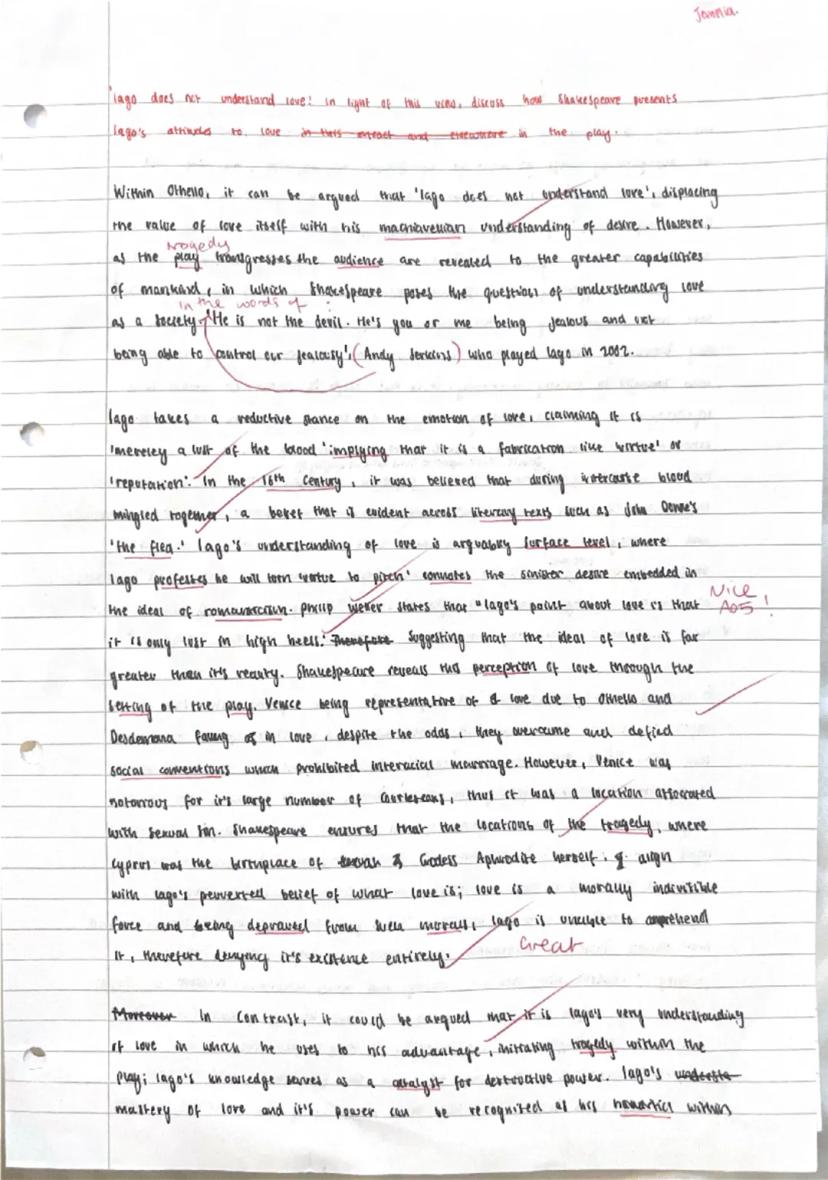 Jemmia.
'Iago does not understand love'. In light of this view, discuss how Shakespeare presents
Iago's attitudes to love in this extract and elsewhere in the play.
Within Othello, it can be argued that 'Iago does not understand love', displacing
the value of love itself with his machiavellian understanding of desire. However,
tragedy
as the play transgresses the audience are revealed to the greater capabilities
of mankind, in which Shakespeare poses the question of understanding love
in the words of :
as a society. 'He is not the devil. He's you or me being jealous and not
being able to control our jealousy', (Andy Serkins) who played Iago in 2002.
Iago takes a reductive stance on the emotion of love, claiming it is
'mereley a lust of the blood' implying that it is a fabrication like 'virtue' or
'reputation'. In the 16th Century, it was believed that during intercourse blood
mingled together, a belief that is evident across literary texts such as John Donne's
'the flea.' Iago's understanding of love is arguably surface level, where
Iago professes he will turn 'virtue to pitch' connotes the sinister desire embedded in
the ideal of romanticism. Philip Weller states that "Iago's point about love is that
Nice AO5!
it is only lust in high heels.' Therefore Suggesting that the ideal of love is far
greater than it's reality. Shakespeare reveals this perception of love through the
setting of the play. Venice being representative of love due to Othello and
Desdemona falling in love, despite the odds, they overcame and defied
social conventions which prohibited interacial marriage. However, Venice was
notorious for it's large number of courtesans, thus it was a location associated
with sexual sin. Shakespeare ensures that the locations of the tragedy, where
Cyprus was the birthplace of Godess Aphrodite herself, align
with Iago's perverted belief of what love is; love is a morally indivisible
force and being depraved from such morals, Iago is unable to comprehend
it, therefore denying it's existence entirely.
Great
Moreover In contrast, it could be argued that it is Iago's very understanding
of love in which he uses to his advantage, initiating tragedy within the
play; Iago's knowledge serves as a catalyst for destructive power. Iago's understa
mastery of love and it's power can be recognised as his within